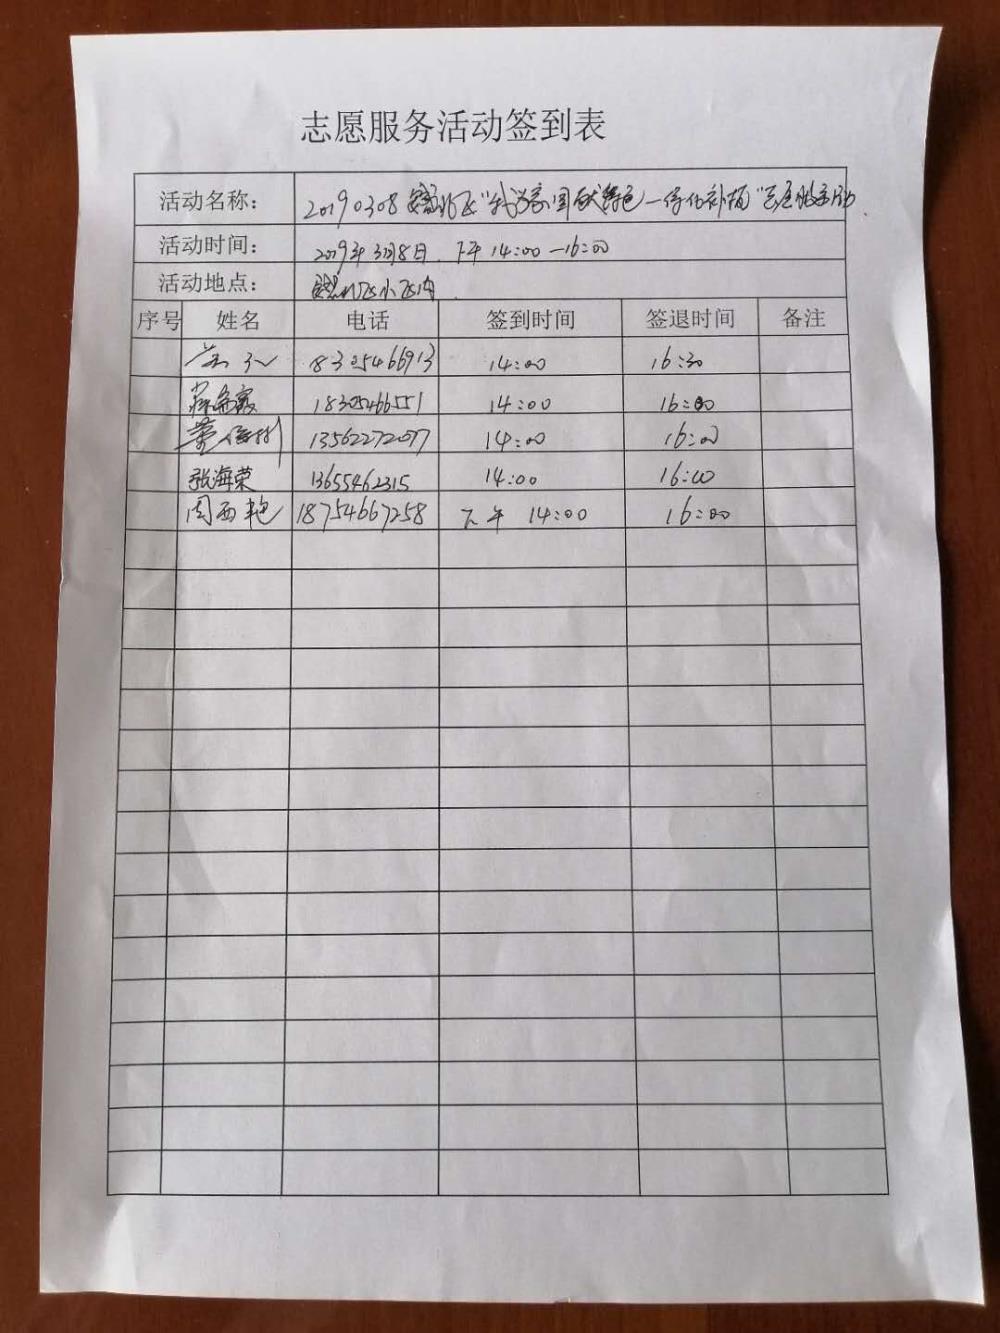 志愿服务活动签到表
活动名称: 20190308 "我为家园献绿色—保化补植"志愿服务活动
活动时间: 2019年3月8日 下午 14:00—16:00
活动地点: 小区内
序号 姓名 电话 签到时间 签退时间 备注
18305466913 14:00 16:30
18305466551 14:00 16:00
13562272077 14:00 16:00
张海荣 13655462315 14:00 16:00
周西艳 18754667258 下午 14:00 16:00